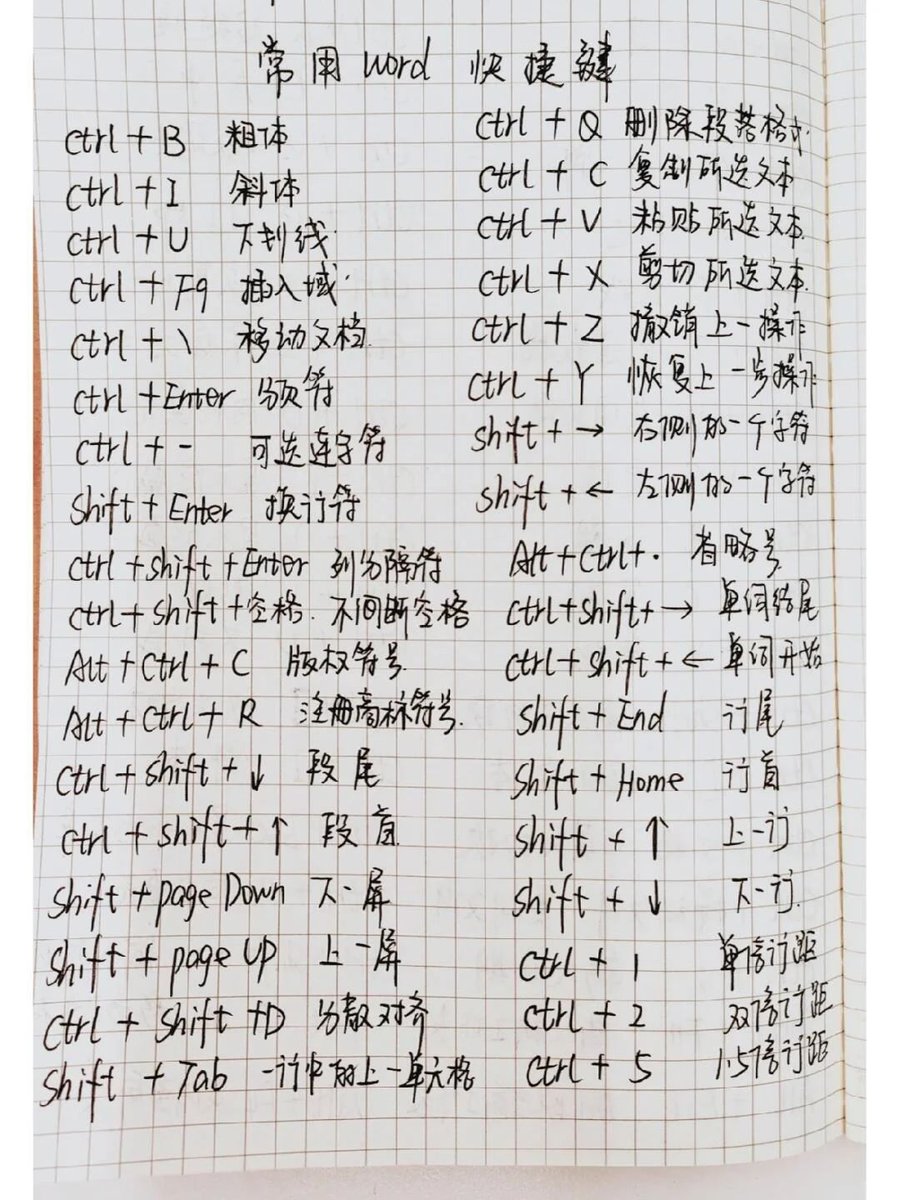 常用word 快捷键
ctrl + B 粗体
ctrl + I 斜体
ctrl + U 下划线
ctrl + F9 插入域
ctrl + \ 移动文档
ctrl + Enter 分页符
ctrl + - 可选连字符
Shift + Enter 换行符
ctrl + shift + Enter 列分隔符
ctrl + shift + 空格 不间断空格
Alt + Ctrl + C 版权符号
Alt + Ctrl + R 注册商标符号
Ctrl + shift + ↓ 段尾
ctrl + shift + ↑ 段首
shift + page Down 下一屏
Shift + page Up 上一屏
Ctrl + Shift + D 分散对齐
Shift + Tab 一行中的上一单元格
Ctrl + Q 删除段落格式
ctrl + C 复制所选文本
ctrl + V 粘贴所选文本
ctrl + X 剪切所选文本
Ctrl + Z 撤销上一操作
ctrl + Y 恢复上一步操作
shift + → 右侧的一个字符
shift + ← 左侧的一个字符
Alt + Ctrl + . 省略号
ctrl + shift + → 单词结尾
ctrl + shift + ← 单词开始
Shift + End 行尾
Shift + Home 行首
shift + ↑ 上一行
shift + ↓ 下一行
Ctrl + 1 单倍行距
Ctrl + 2 双倍行距
Ctrl + 5 1.5倍行距